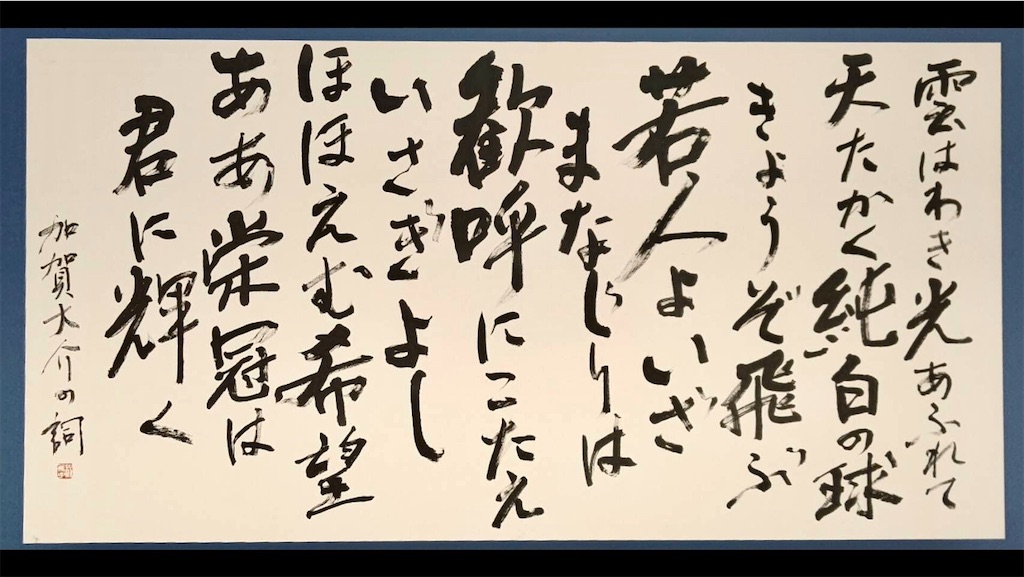 雲はわき光あふれて
天たかく純白の球
きょうぞ飛ぶ
若人よいざ
まなじりは
歓呼にこたえ
いさぎよし
ほほえむ希望
ああ栄冠は
君に輝く
加賀大介の詞